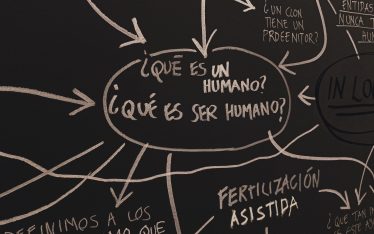 ¿UN CLON
TIENE UN
PROGENITOR?
ENTIDAS
NUNCA T
HUM
¿QUÉ ES UN
HUMANO?
¿QUÉ ES SER HUMANO?
IN LO
FERTILIZACIÓN
ASISTIDA
DEFINIMOS A LOS
MO QUE
¿QUE TAN